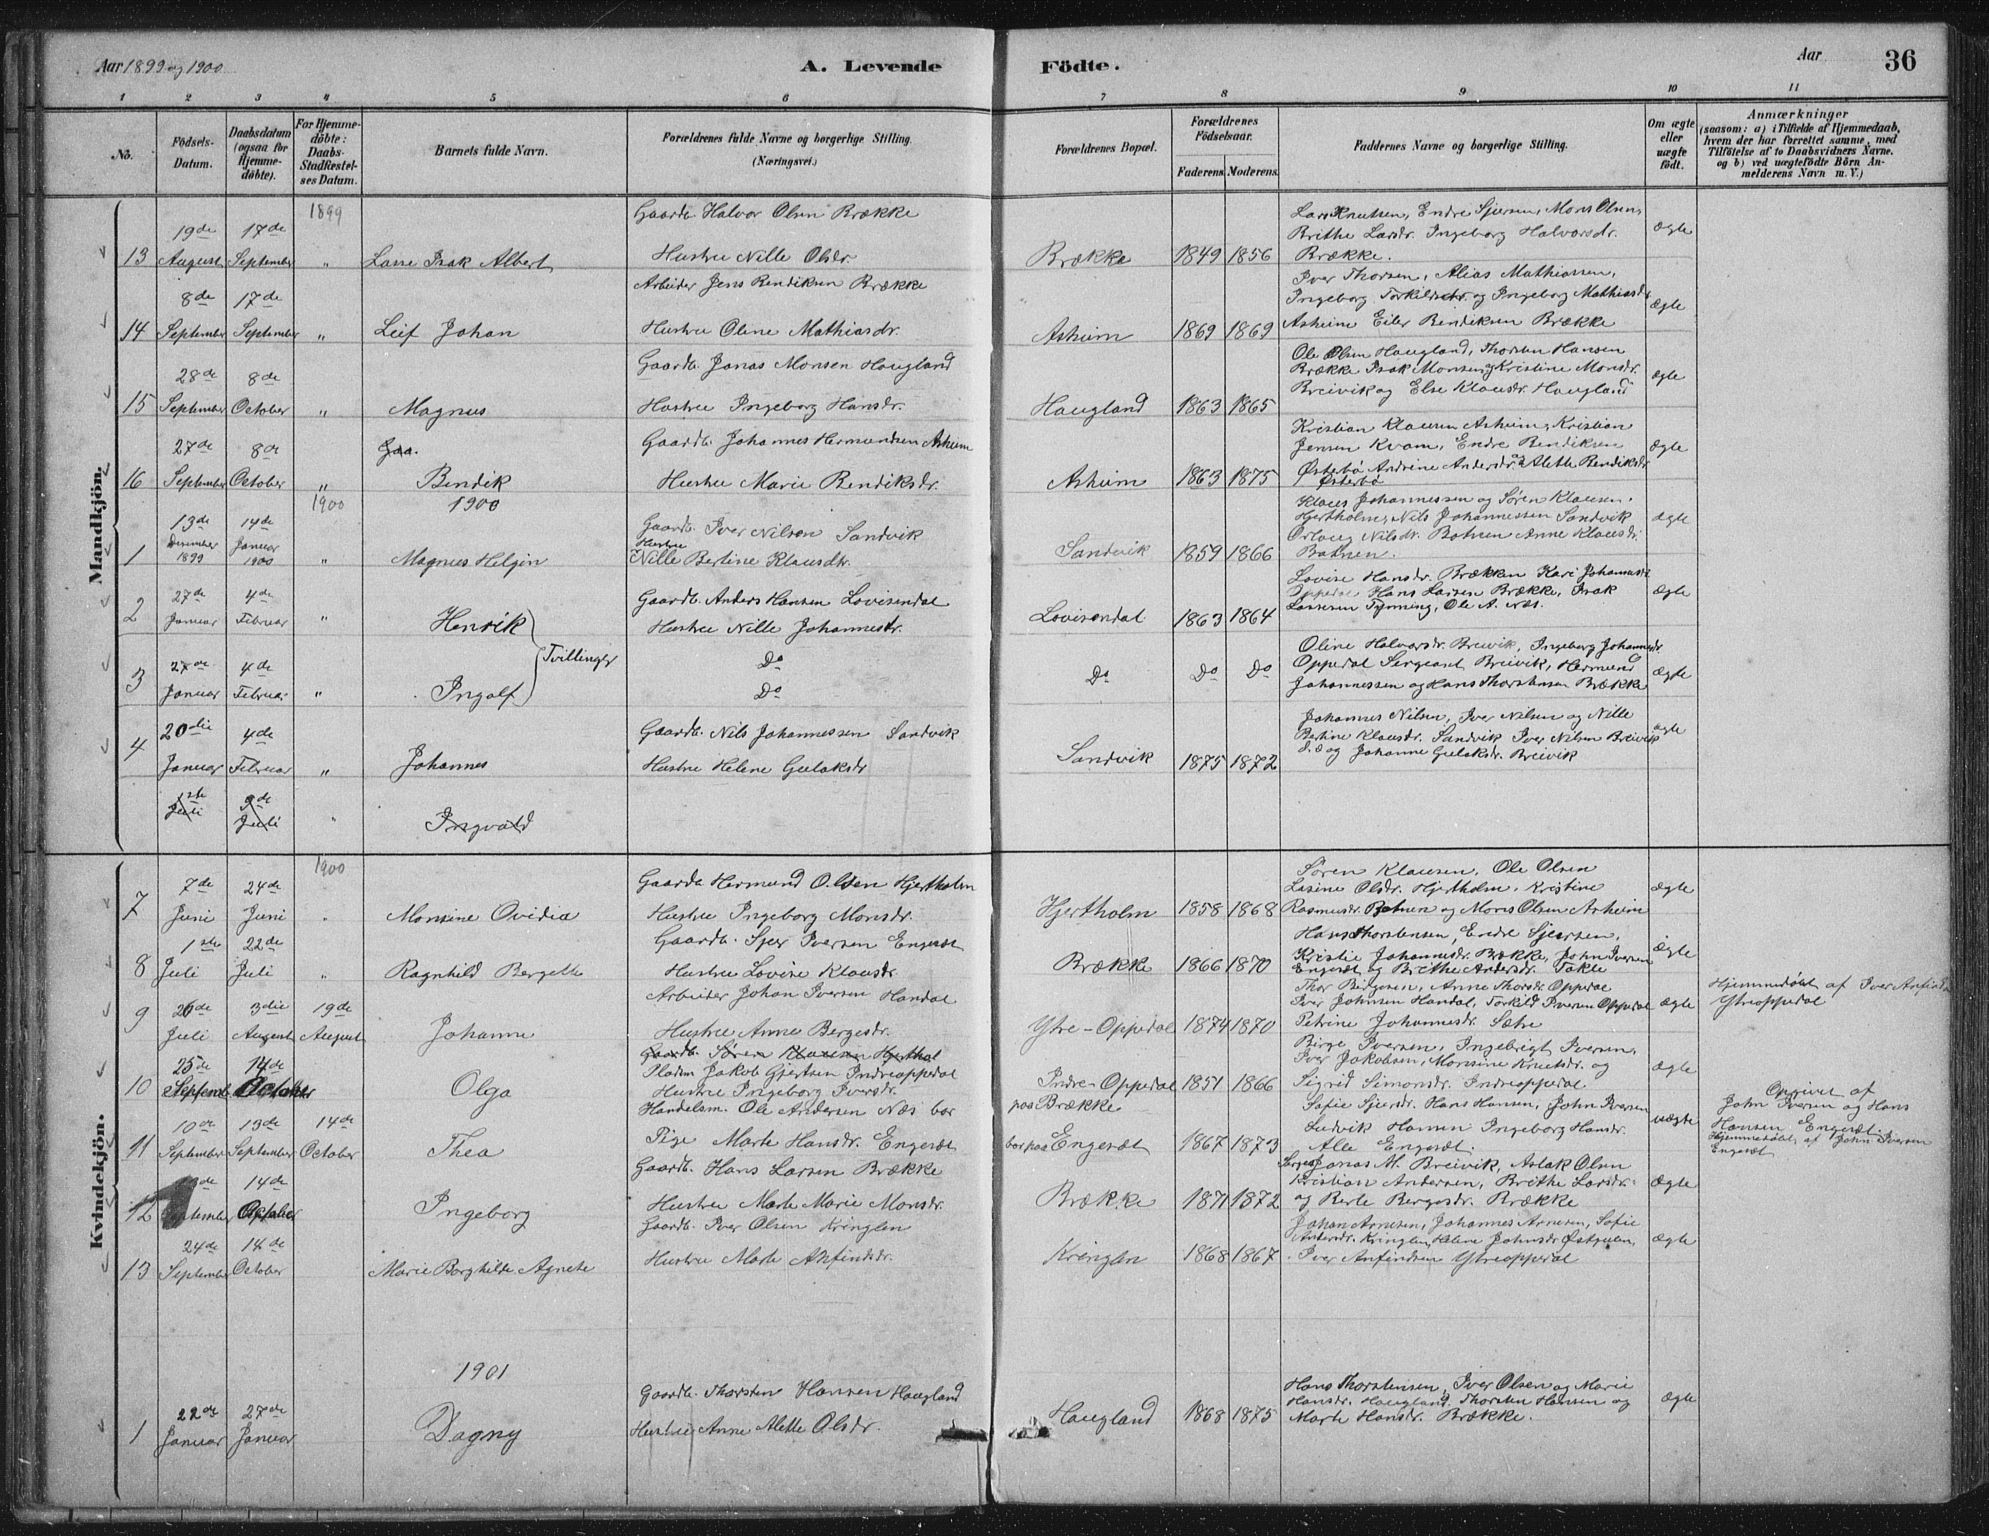 Aar 1899 og 1900
A. Levende
Födte.
Aar
36
1 2 3 4 5 6 7 8 9 10 11
No.
Födsels-
Datum.
Daabsdatum
(ogsaa for
Hjemme-
döbte).
For Hjemme-
döbte:
Daabs-
Stadfæstel-
ses Datum.
Barnets fulde Navn.
Forældrenes fulde Navne og borgerlige Stilling.
(Næringsvei.)
Forældrenes Bopæl.
Forældrenes
Födselsaar.
Faderens. Moderens.
Faddernes Navne og borgerlige Stilling.
Om ægte
eller
uægte
født.
Anmærkninger
(saasom: a) i Tilfælde af Hjemmedaab,
hvem der har forrettet samme, med
Tilföielse af to Daabsvidners Navne,
og b) ved uægtefödte Börn An-
melderens Navn m. V.)
Mandkjön.
1899
13 19de August 17de September " Lasse Isak Albert
Gaardb. Halvor Olsen Brække
Hustru Nille Olsdr.
Brække 1849 1856
Lars Knutsen, Endre Sjursen, Mons Olsen,
Brithe Larsdr. Ingeborg Halvorsdr.
Brække.
ægte
14 8de September 17de September " Leif Johan
Arbeider Jens Bendiksen Brække
Hustru Oline Mathiasdr.
Asheim 1869 1869
Iver Thorsen, Alias Mathiassen,
Ingeborg Torkildsdr. og Ingeborg Mathiasdr.
Asheim Eiler Bendiksen Brække
ægte
15 28de September 8de October " Magnus
Gaardb. Jonas Monsen Haugland
Hustru Ingeborg Hansdr.
Haugland 1863 1865
Ole Olsen Haugland, Thorsten Hansen
Brække Isak Monsen og Kristine Monsdr.
Breivik og Else Klausdr. Haugland
ægte
16 27de September 8de October " Gaa.
Bendik
Gaardb. Johannes Hermundsen Asheim
Hustru Marie Bendiksdr.
Asheim 1863 1875
Kristian Klausen Asheim, Kristian
Jensen Kvam, Endre Bendiksen
Østerbø Andrine Andersdr. og Alette Bendiksdr.
Østerbø
ægte
1900 1900
1 13de December 1899 14de Januar 1900 " Magnus Helgin
Gaardb. Iver Nilsen Sandvik
Hustru
Nille Bertine Klausdtr.
Sandvik 1859 1866
Klaus Johannessen og Søren Klausen
Hjertholm, Nils Johannessen Sandvik
Orlaug Nilsdr. Botnen Anne Klausdr.
Botnen.
ægte
2 27de Januar 4de Februar " Henrik
Tvillinger
Gaardb. Anders Hansen Lovisendal
Hustru Nille Johannesdr.
Lovisendal 1863 1864
Lovise Hansdr. Brækken Kari Johannesdr.
Oppedal Hans Larsen Brække, Isak
Lassesen Tynning, Ole A. Næs.
ægte
3 27de Januar 4de Februar " Ingolf
Do
Do
Do Do Do
Oline Halvorsdr. Breivik, Ingeborg Johannesdr.
Oppedal Sergeant Breivik, Hermund
Johannessen og Hans Thorstensen Brække
ægte
4 20die Januar 4de Februar " Johannes
Gaardb. Nils Johannessen Sandvik
Hustru Helene Gulaksdr.
Sandvik 1875 1872
Johannes Nilsen, Iver Nilsen og Nille
Bertine Klausdr. Sandvik Iver Nilsen Breivik
og Johanne Gulaksdr. Breivik
ægte
1ste Juli 9de Juli " Ingvald
Kvindekjön.
1900
7 7de Juni 24de Juni " Monsine Ovidia
Gaardb. Hermund Olsen Hjertholm
Hustru Ingeborg Monsdr.
Hjertholm 1858 1868
Søren Klausen, Ole Olsen
Lasine Olsdr. Hjertholm, Kristine
Rasmusdr. Botnen og Mons Olsen Asheim
ægte
8 1ste Juli 22de Juli " Ragnhild Bergette
Gaardb. Sjur Iversen Engesæt
Hustru Lovise Klausdr.
Brække 1866 1870
Hans Thorstensen, Endre Sjursen,
Kristie Johannesdr. Brække, John Iversen
Engesæt og Brithe Andersdr. Takle
ægte
9 26de Juli 3die August 19de August Johanne
Arbeider Johan Iversen Handal
Hustru Anne Bergesdr.
Ytre-Oppedal 1874 1870
Thor Birgesen, Anne Thorsdr. Oppedal
Iver Johnsen Handal, Torkild Iversen Oppedal
Petrine Johannesdr. Sætre
ægte
Hjemmedøbt af Iver Anfinds
Ytreoppedal
10 25de September 14de October Olga
Gaardb. Søren Klausen Hjerthol
Pladsm. Jakob Gjertsen Indreoppedal
Hustru Ingeborg Iversdr.
Indre-Oppedal 1851 1866
Birge Iversen, Ingebrigt Iversen,
Iver Jakobsen, Monsine Knutsdr. og
Sigrid Simonsdr. Indreoppedal
ægte
11 10de September 19de September 14de October Thea
Handelsm. Ole Andersen Næs bor
Pige Marte Hansdr. Engesæt
paa Brække
bor paa Engesæt 1867 1873
Sofie Sjursdr. Hans Hansen, John Iversen
Ludvik Hansen Ingeborg Hansdr.
Alle Engesæt.
uægte
Opgivet af
John Iversen og Hans
Hansen Engesæt.
Hjemmedøbt af John Iversen
Engesæt
12 September 14de October Ingeborg
Gaardb. Hans Larsen Brække
Hustru Marte Marie Monsdr.
Brække 1871 1872
Jonas M. Breivik, Aslak Olsen
Kristian Andersen, Brithe Larsdr.
og Berte Bergesdr. Brække
ægte
13 24de September 14de October Marie Borghilde Agnete
Gaardb. Iver Olsen Kringlen
Hustru Marte Anfindsdr.
Kringlen 1868 1867
Johan Arnesen, Johannes Arnesen, Sofie
Andersdr. Kringlen, Helene Johnsdr. Østgulen,
Iver Anfindsen Ytreoppedal
ægte
1901
1 22de Januar 27de Januar Dagny
Gaardb. Thorsten Hansen Haugland
Hustru Anne Alette Olsdr.
Haugland 1868 1875
Hans Thorstensen, Iver Olsen og Marie
Hansdr. Haugland Thorsten Hansen og
Marte Hansdr. Brække.
ægte